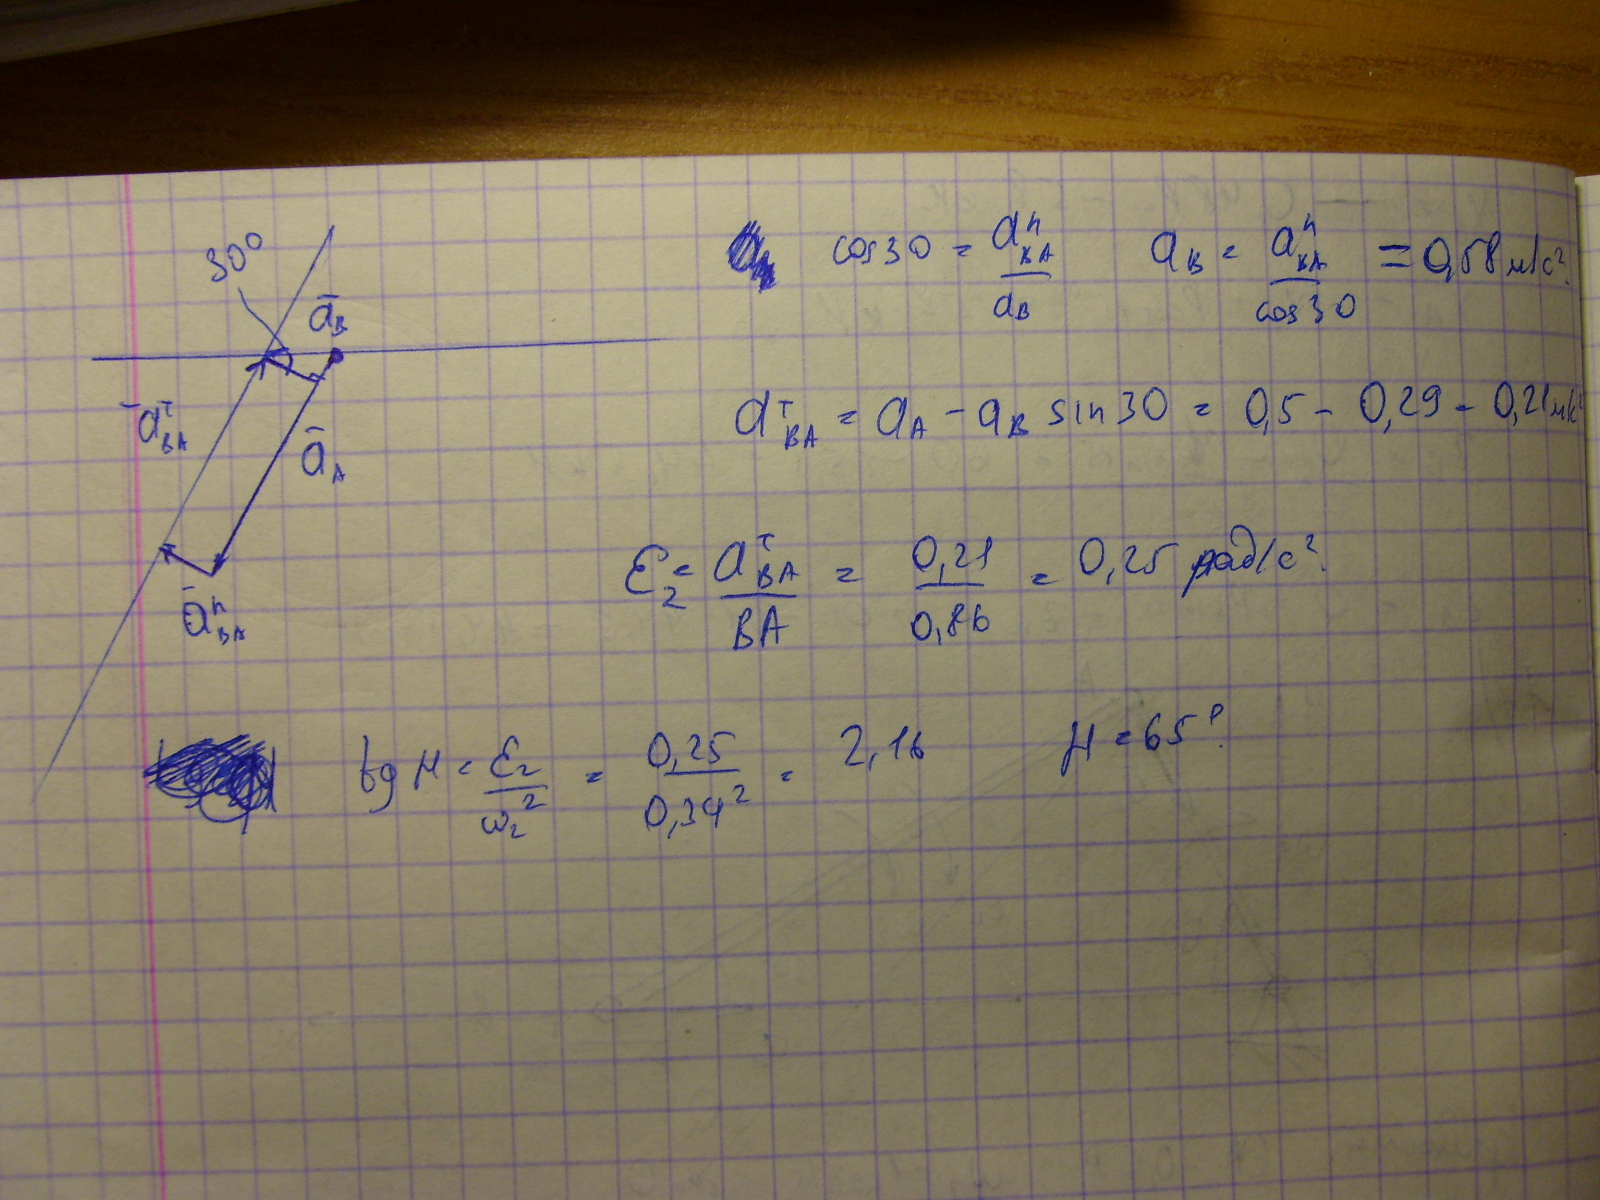 30°
a̅_B
-a̅^τ_BA
a̅_A
a̅^n_BA
cos30 = a^n_BA / a_B    a_B = a^n_BA / cos30 = 0,58 м/с².
a^τ_BA = a_A - a_B sin30 = 0,5 - 0,29 = 0,21 м/с²
ε_2 = a^τ_BA / BA = 0,21 / 0,86 = 0,25 рад/с².
tg μ = ε_2 / ω_2² = 0,25 / 0,34² = 2,16    μ = 65°.